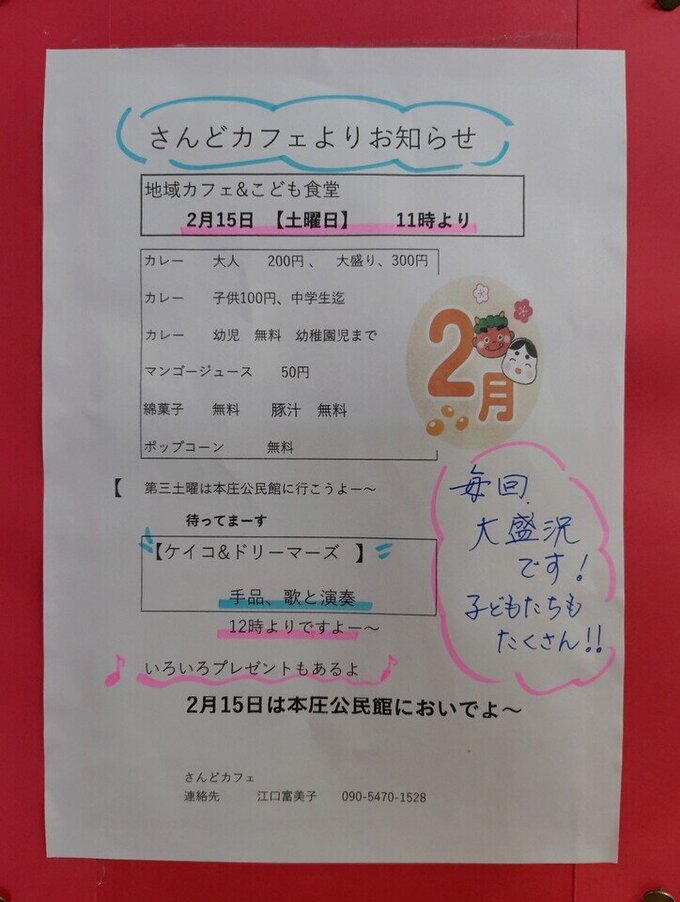 さんどカフェよりお知らせ
地域カフェ&こども食堂
2月15日 【土曜日】 11時より
カレー 大人 200円 、 大盛り、300円
カレー 子供100円、中学生迄
カレー 幼児 無料 幼稚園児まで
マンゴージュース 50円
綿菓子 無料 豚汁 無料
ポップコーン 無料
2月
【 第三土曜は本庄公民館に行こうよー〜
待ってまーす
【ケイコ&ドリーマーズ 】
手品、歌と演奏
12時よりですよー〜
いろいろプレゼントもあるよ
毎回
大盛況
です!
子どもたちも
たくさん!!
2月15日は本庄公民館においでよ〜
さんどカフェ
連絡先 江口富美子 090-5470-1528